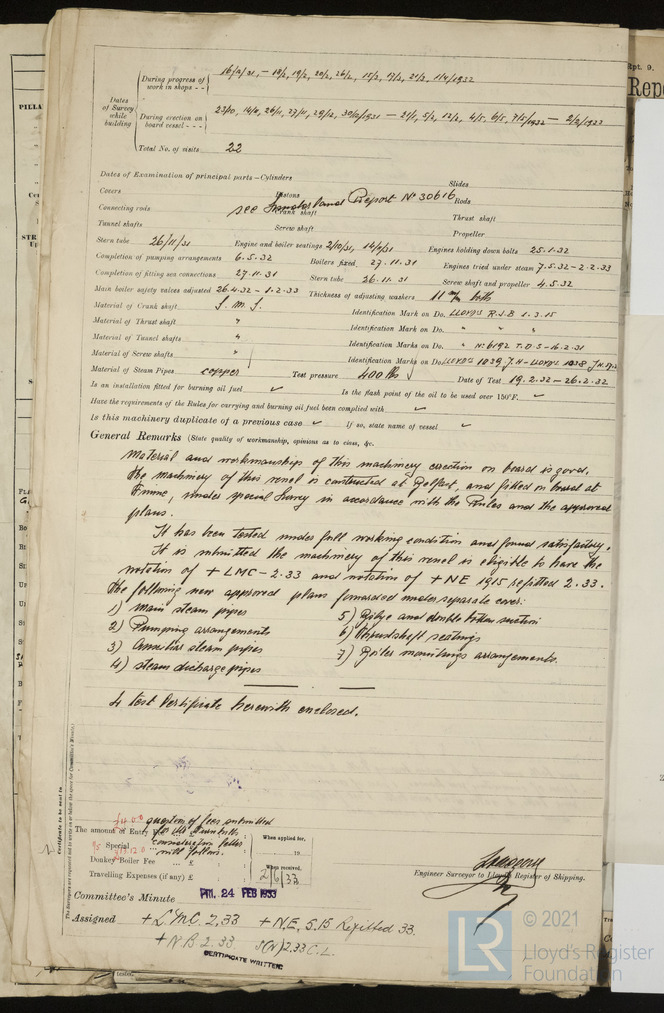 During progress of work in shops - - 16/12/31, - 19/2, 19/2, 20/2, 26/2, 11/3, 17/3, 21/3, 11/4/1932
Dates of Survey while building
During erection on board vessel - - -
Total No. of visits 22
Dates of Examination of principal parts—Cylinders Slides
Covers Pistons Rods
Connecting rods see Sunderland Report No 30616
Crank shaft Thrust shaft
Tunnel shafts Screw shaft Propeller
Stern tube 26/11/31 Engine and boiler seatings 2/10/31, Engines holding down bolts 25.1.32
Completion of pumping arrangements 6.5.32 Boilers fixed 27.11.31 Engines tried under steam 7.5.32 - 2.2.33
Completion of fitting sea connections 27.11.31 Stern tube 26.11.31 Screw shaft and propeller 4.5.32
Main boiler safety valves adjusted 26.4.32 - 1.2.33 Thickness of adjusting washers 11 m/m both
Material of Crank shaft S.M.S. Identification Mark on Do. LLOYDS R.J.B 1.3.15
Material of Thrust shaft " Identification Mark on Do. " " "
Material of Tunnel shafts " Identification Marks on Do. " No 6192 T.D.S - 16.2.31
Material of Screw shafts " Identification Marks on Do. LLOYDS 1039 J.H - LLOYDS 1038
Material of Steam Pipes copper Test pressure 400 lbs Date of Test 19.2.32 - 26.2.32
Is an installation fitted for burning oil fuel ✓ Is the flash point of the oil to be used over 150°F. ✓
Have the requirements of the Rules for carrying and burning oil fuel been complied with ✓
Is this machinery duplicate of a previous case ✓ If so, state name of vessel ✓
General Remarks (State quality of workmanship, opinions as to class, &c.
Material and workmanship of this machinery erection on board is good.
The machinery of this vessel is constructed at Belfast, and fitted on board at
Fiume, under special Survey in accordance with the Rules and the approved
plans.
It has been tested under full working condition and found satisfactory.
It is submitted the machinery of this vessel is eligible to have the
notation of + LMC - 2.33 and notation of + NE 1915 refitted 2.33.
The following new approved plans forwarded under separate cover:
1) Main steam pipes 5) Bilge and double bottom suction
2) Pumping arrangements 6) Thrustshaft seatings
3) Auxiliar steam pipes 7) Boiler mountings arrangements.
4) steam discharge pipes
4 test Certificate herewith enclosed.
Certificate to be sent to
The Surveyors are requested not to write on or below the space for Committee's Minute.
question of fees submitted
The amount of Entry Fee
Special
consideration letter
will follow.
Donkey Boiler Fee ... £
Travelling Expenses (if any) £
When applied for,
19
When received,
2/6/33
Engineer Surveyor to Lloyd's Register of Shipping.
Committee's Minute FRI. 24 FEB 1933
Assigned + L.M.C. 2.33 + N.E. 5.15 Refitted 33.
+ N.B 2.33 S(N) 2.33 C.L.
CERTIFICATE WRITTEN
LR
© 2021
Lloyd's Register
Foundation
Rpt. 9.
PILLA